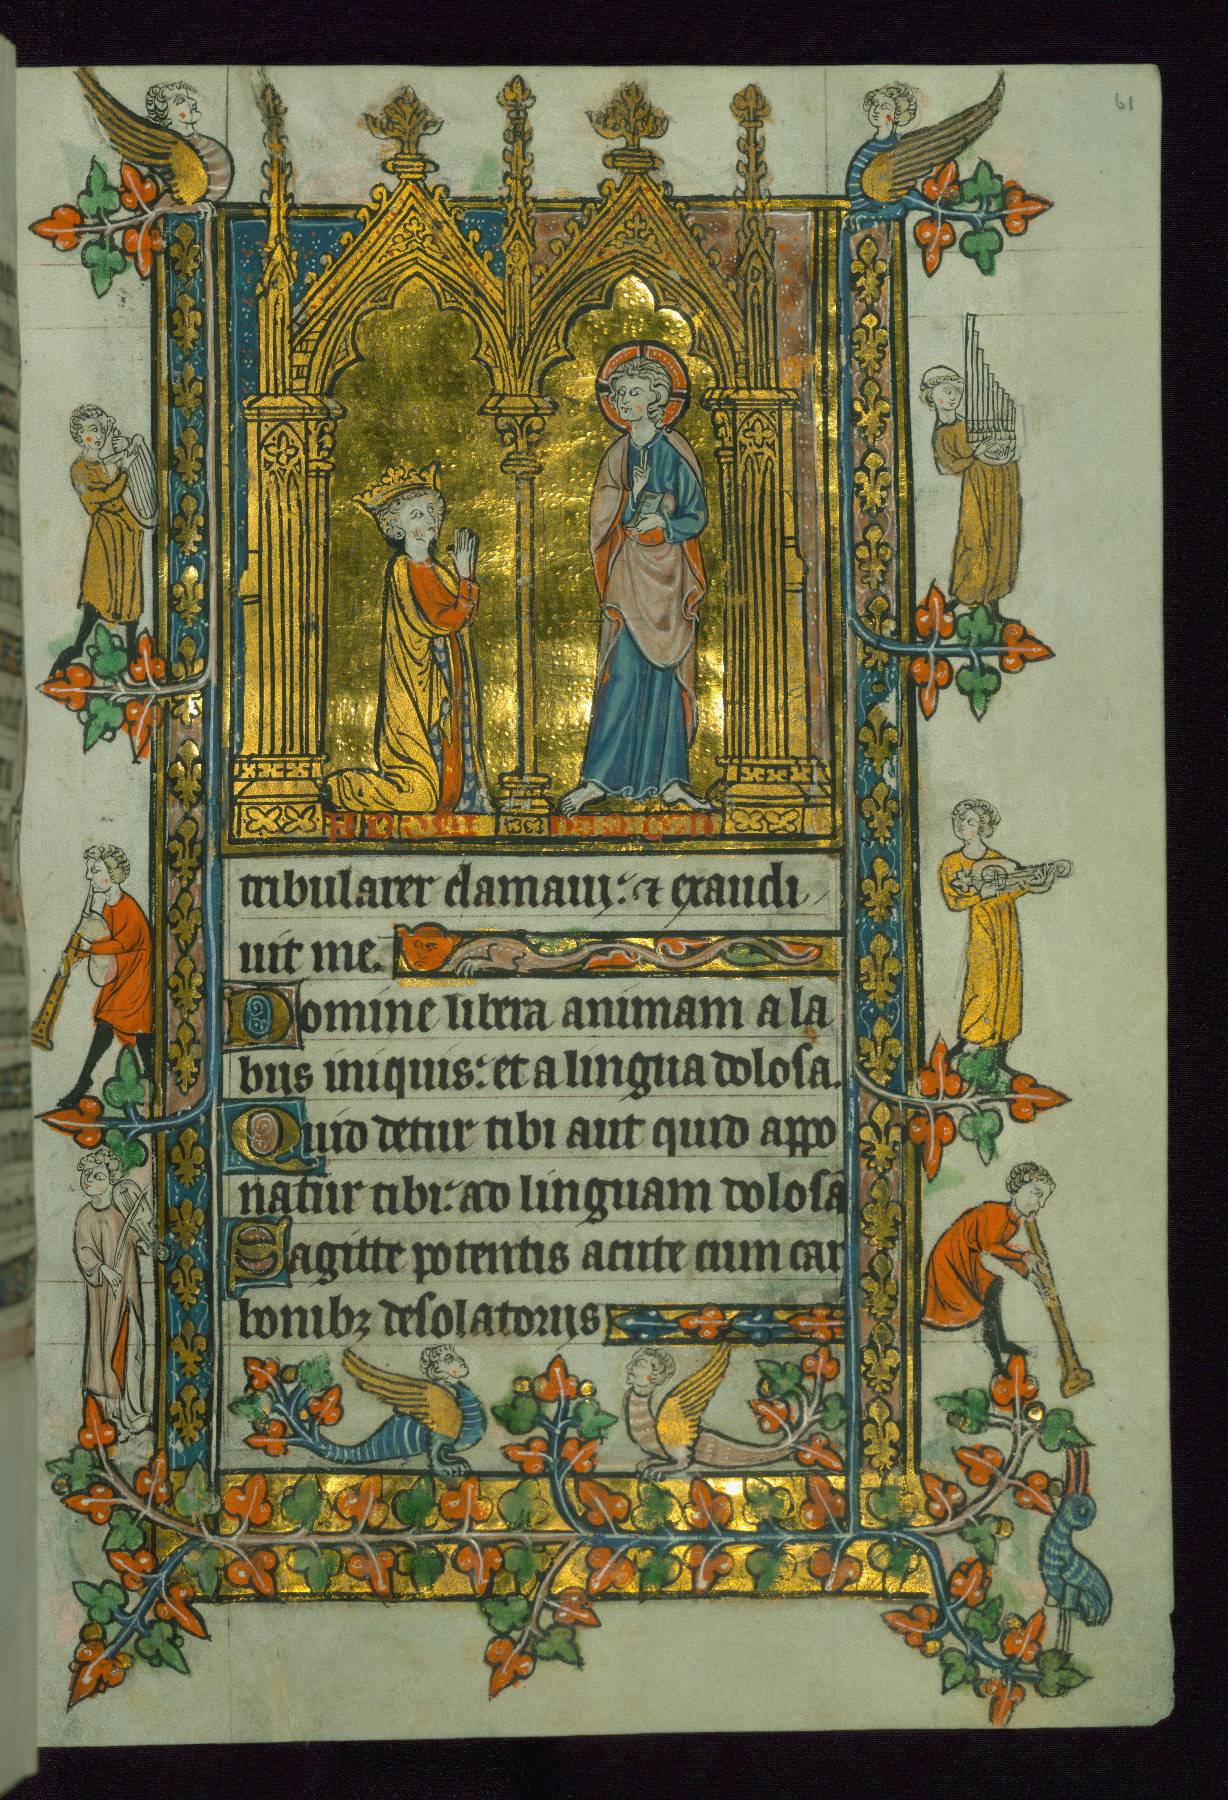 61
tribularer clamaui: ⁊ exaudi
uit me.
Domine libera animam a la
biis iniquis: et a lingua dolosa.
Quid detur tibi aut quid appo
natur tibi: ad linguam dolosā
Sagitte potentis acute cum car
bonibꝫ desolatoriis